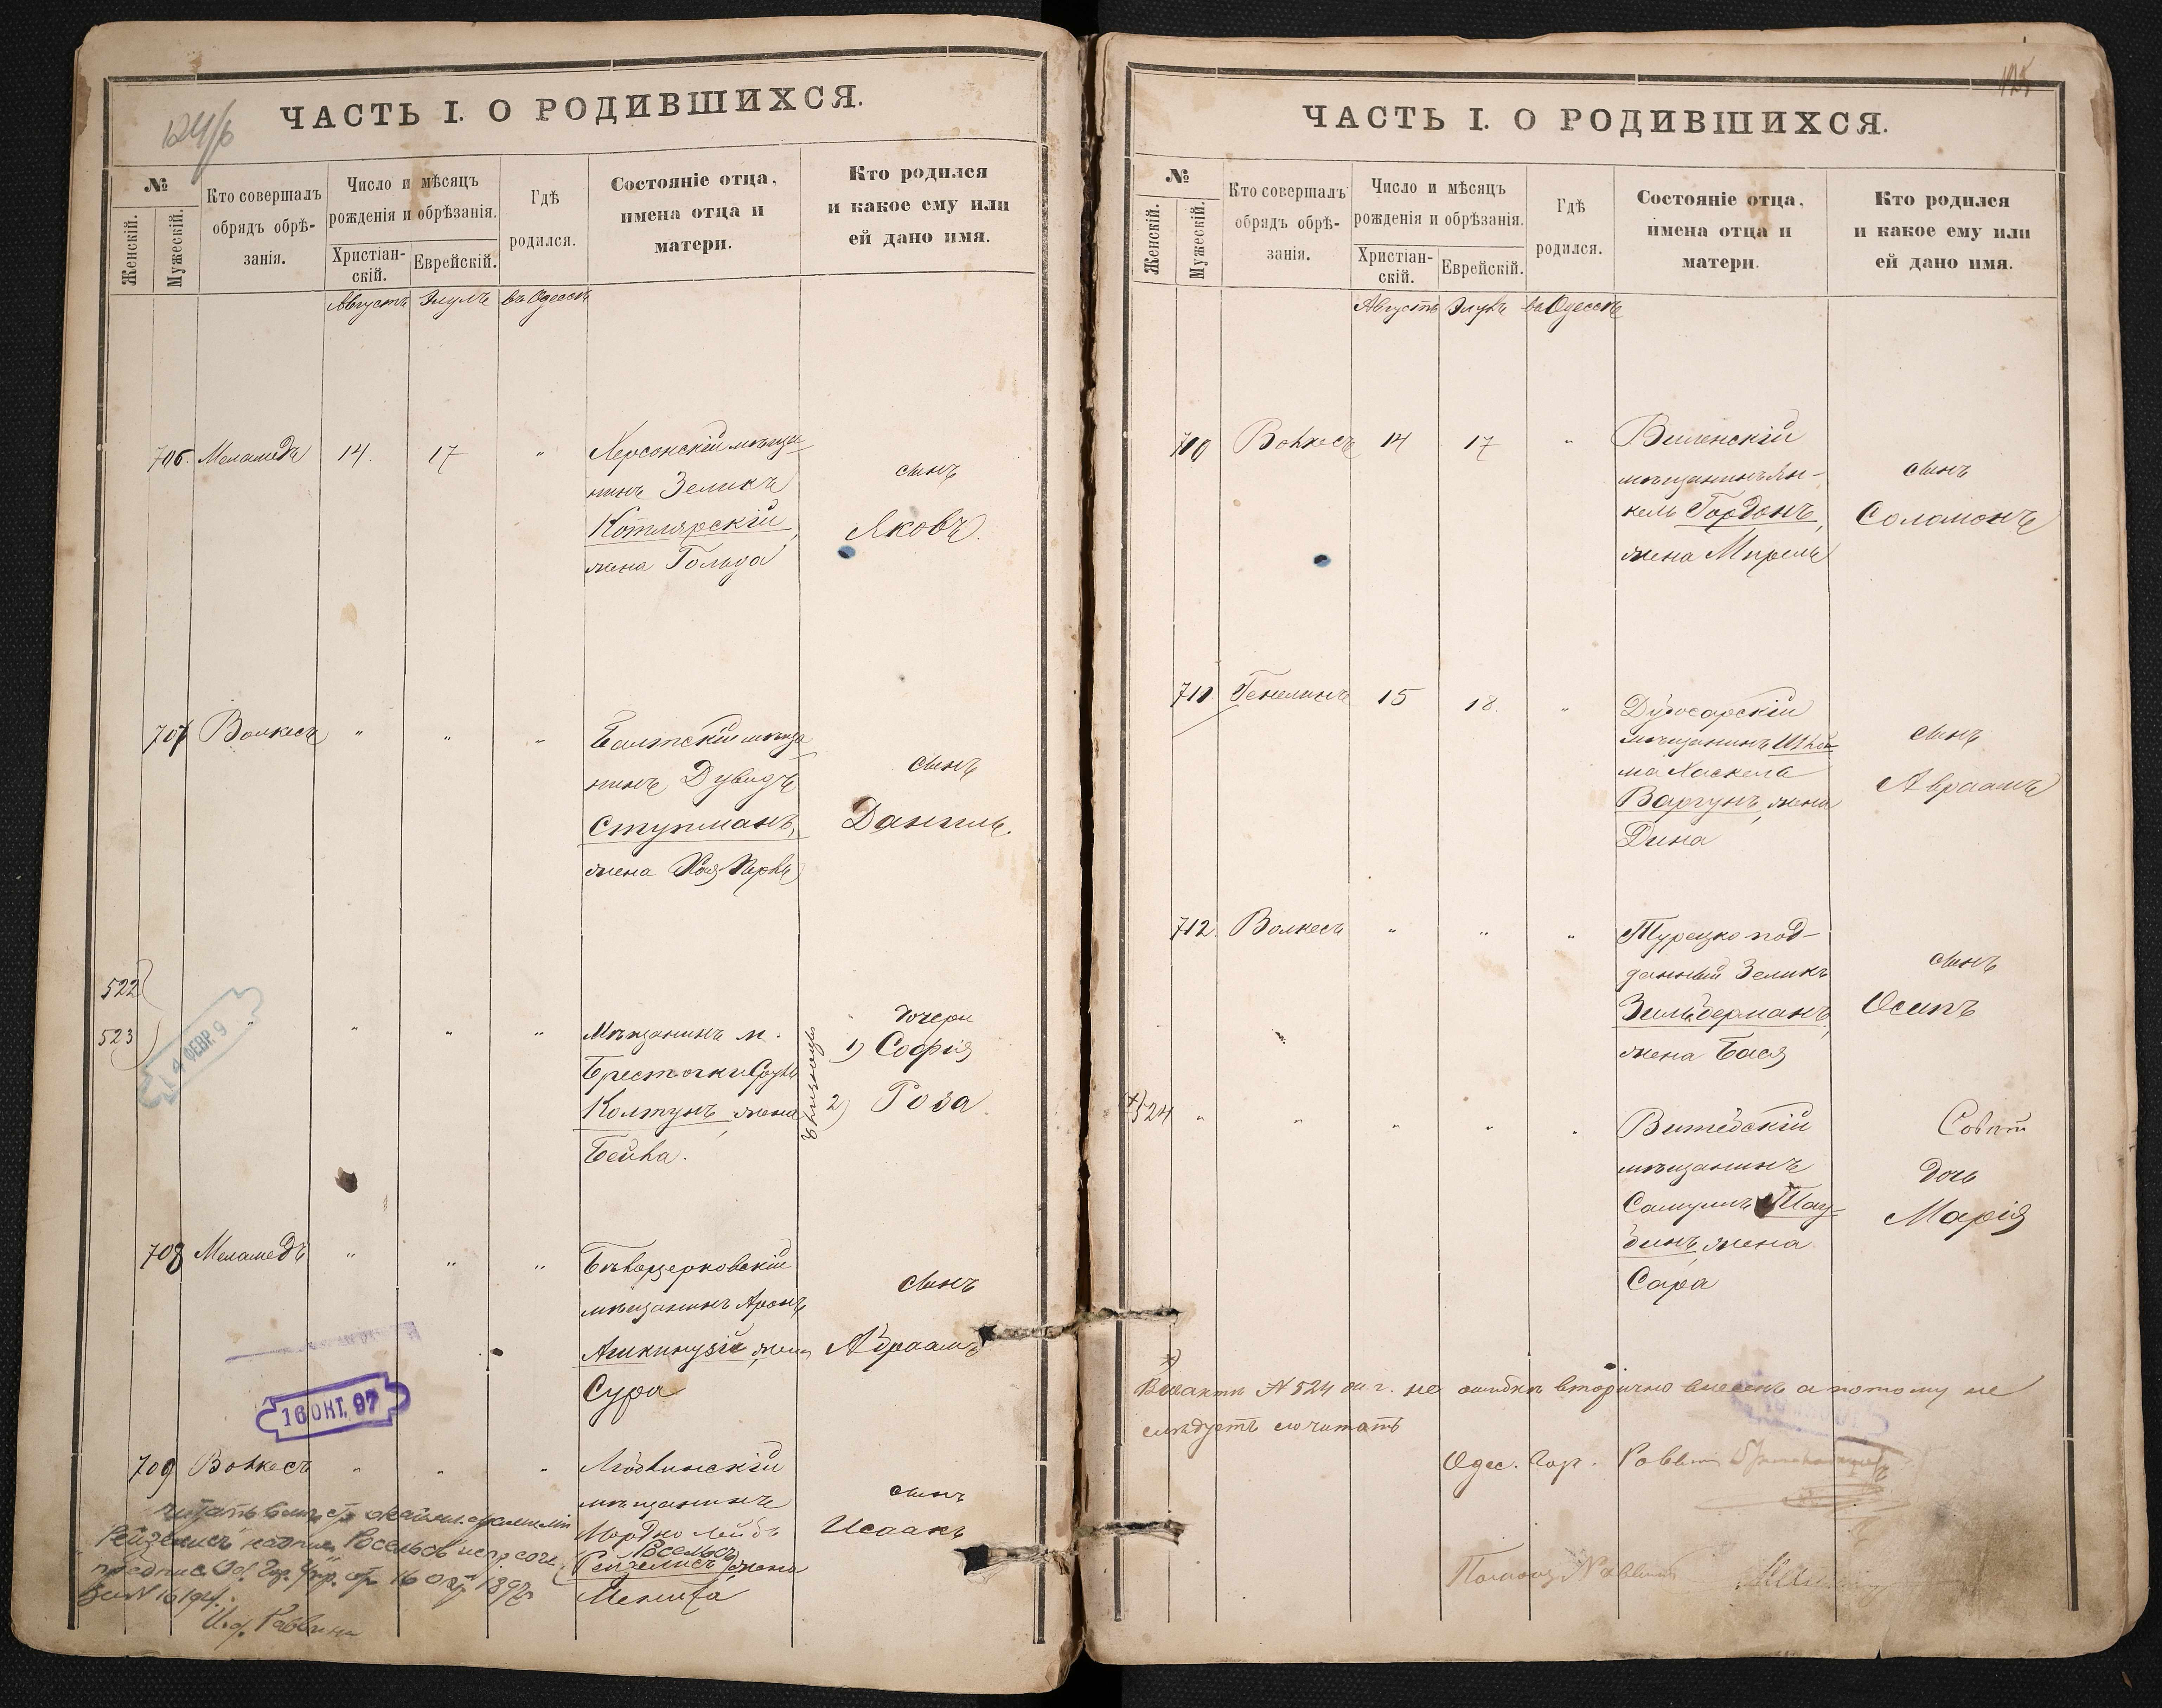 124/б
ЧАСТЬ I. О РОДИВШИХСЯ.
№
Женскій.
Мужескій.
Кто совершалъ
обрядъ обрѣ-
занія.
Число и мѣсяцъ
рожденія и обрѣзанія.
Христіан-
скій.
Еврейскій.
Гдѣ
родился.
Состояніе отца,
имена отца и
матери.
Кто родился
и какое ему или
ей дано имя.
Августъ Элулъ въ Одессѣ
706. Меламедъ 14. 17 " Херсонскій мѣща-
нинъ Зеликъ
Котлярскій,
жена Гольда
сынъ
Яковъ.
707 Волкесъ " " " Балтскій мѣща-
нинъ Дувидъ
Ступманъ,
жена Хая Перль
сынъ
Даніилъ.
522
523
4 ФЕВР. 9
" " " " Мѣщанинъ м.
Колтунъ, жена
Бейла.
близнецы
дочери
1) Софія
2) Роза.
708 Меламедъ " " " Бѣлоцерковскій
мѣщанинъ Аронъ
Ашкинузій, жена
Сура
сынъ
Абраамъ
16 ОКТ. 97
709 Волкесъ " " "
мѣщанинъ
Мордко Лейбъ
Росельсъ
Рейзелисъ, жена
сынъ
Исаакъ
16 Окт. 1897 г.
за N 16194.
И. д. Раввина
125
ЧАСТЬ I. О РОДИВШИХСЯ.
№
Женскій.
Мужескій.
Кто совершалъ
обрядъ обрѣ-
занія.
Число и мѣсяцъ
рожденія и обрѣзанія.
Христіан-
скій.
Еврейскій.
Гдѣ
родился.
Состояніе отца,
имена отца и
матери.
Кто родился
и какое ему или
ей дано имя.
Августъ Элулъ въ Одессѣ
710 Волкесъ 14 17 " Виленскій
мѣщанинъ Ян-
кель Гордонъ,
жена Мирель
сынъ
Соломонъ
711 Генелинъ 15 18. " Дубосарскій
мѣщанинъ Шлой-
ма Хаскель
Варгунъ, жена
Дина
сынъ
Авраамъ
712. Волкесъ " " " Турецко под-
данный Зеликъ
Зильберманъ,
жена Бася
сынъ
Осипъ
*) 524 " " " " " Витебскій
мѣщанинъ
Самуилъ Шау-
бинъ, жена
Сара
дочь
Марія
*)
актъ N 524 по ошибкѣ вторично внесенъ а потому не
слѣдуетъ считать
Одес. Гор. Раввинъ
Помощ. Раввина